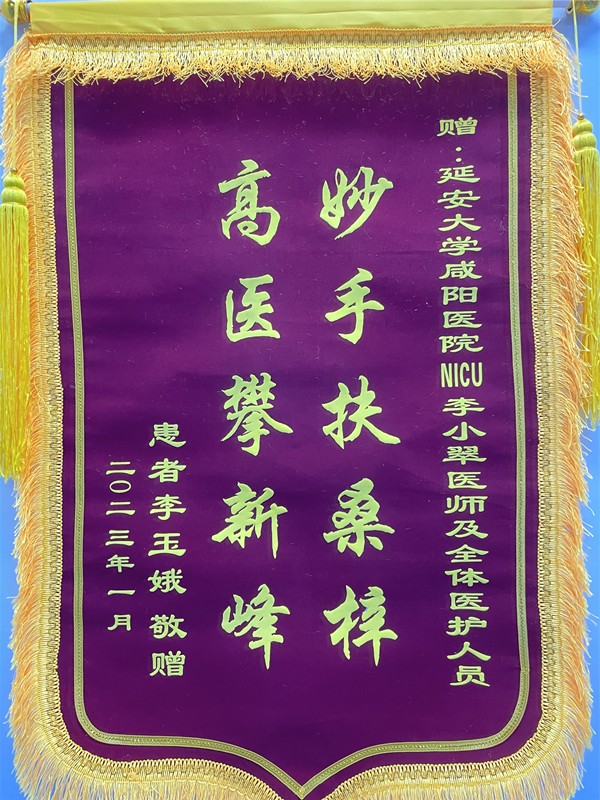 赠：延安大学咸阳医院NICU李小翠医师及全体医护人员
妙手扶桑梓
高医攀新峰
患者李玉娥敬赠
二〇二三年一月